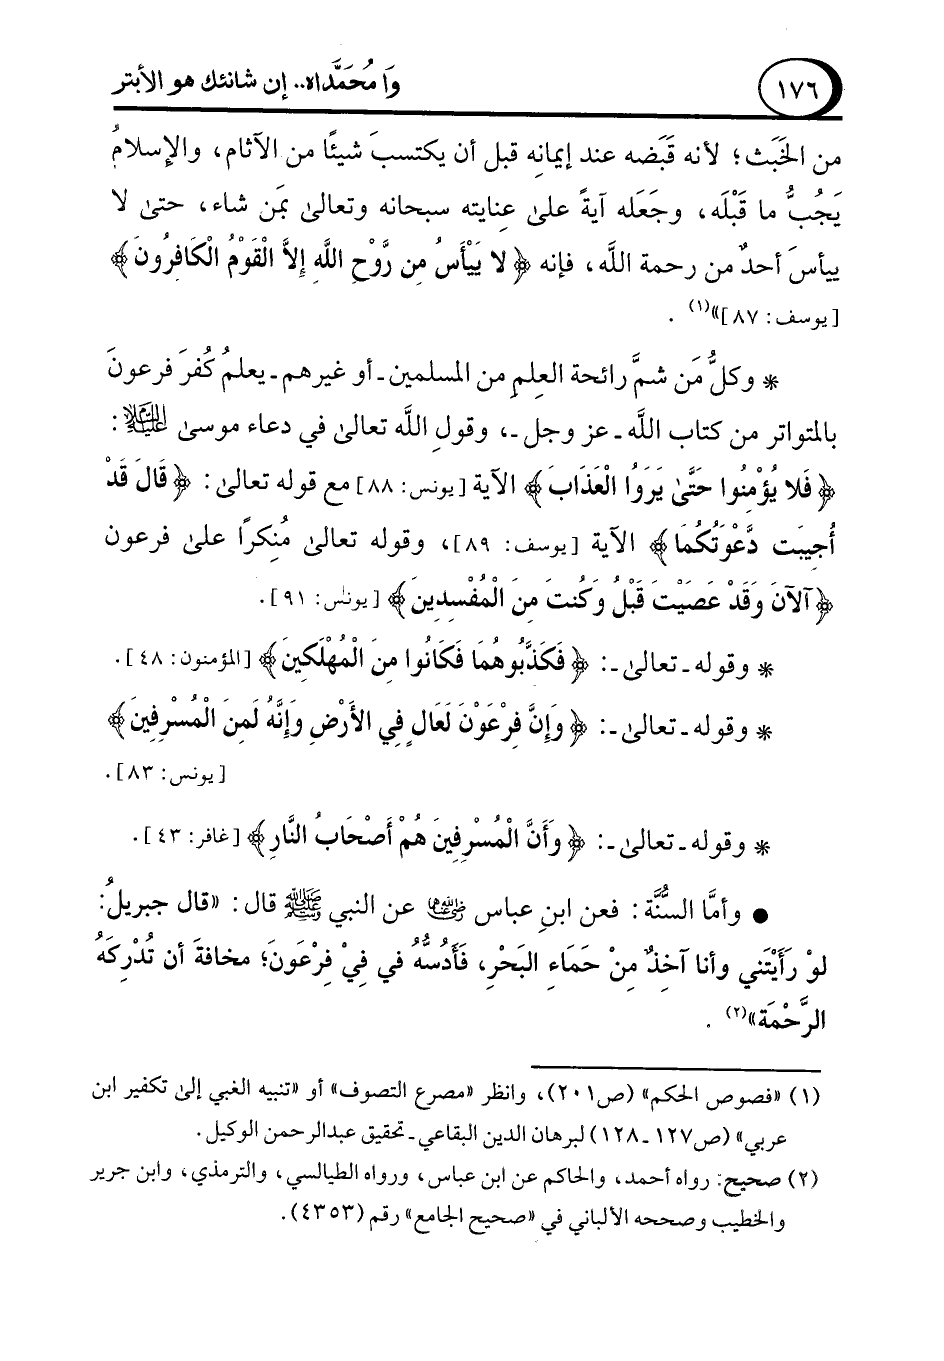 ١٧٦
وَا مُحَمَّداه.. إن شانئك هو الأبتر
من الخَبَث؛ لأنه قَبَضه عند إيمانِه قبل أن يكتسبَ شيئًا من الآثام، والإسلامُ
يَجُبُّ ما قَبْلَه، وجَعَله آيةً علىٰ عِنايته سبحانه وتعالىٰ بمَن شاء، حتىٰ لا
ييأسَ أحدٌ من رحمة اللَّه، فإنه ﴿لا يَيْأَسُ مِن رَّوْحِ اللَّهِ إِلاَّ الْقَوْمُ الْكَافِرُونَ﴾
[يوسف: ٨٧]»(١).
* وكلُّ مَن شمَّ رائحة العِلمِ من المسلمين ـ أو غيرهم ـ يعلمُ كُفرَ فرعونَ
بالمتواتر من كتاب اللَّه ـ عز وجل ـ، وقولِ اللَّه تعالىٰ في دعاء موسىٰ عليه السلام:
﴿فَلا يُؤْمِنُوا حَتَّىٰ يَرَوُا الْعَذَابَ﴾ الآية [يونس: ٨٨] مع قوله تعالىٰ: ﴿قَالَ قَدْ
أُجِيبَت دَّعْوَتُكُمَا﴾ الآية [يوسف: ٨٩]، وقوله تعالىٰ مُنكرًا علىٰ فرعون
﴿آلآنَ وَقَدْ عَصَيْتَ قَبْلُ وَكُنتَ مِنَ الْمُفْسِدِينَ﴾ [يونس: ٩١].
* وقوله ـ تعالىٰ ـ: ﴿فَكَذَّبُوهُمَا فَكَانُوا مِنَ الْمُهْلَكِينَ﴾ [المؤمنون: ٤٨].
* وقوله ـ تعالىٰ ـ: ﴿وَإِنَّ فِرْعَوْنَ لَعَالٍ فِي الأَرْضِ وَإِنَّهُ لَمِنَ الْمُسْرِفِينَ﴾
[يونس: ٨٣].
* وقوله ـ تعالىٰ ـ: ﴿وَأَنَّ الْمُسْرِفِينَ هُمْ أَصْحَابُ النَّارِ﴾ [غافر: ٤٣].
● وأمَّا السُّنَّة: فعن ابنِ عباس رضي الله عنهما عن النبي ﷺ قال: «قال جبريلُ:
لوْ رَأَيْتَني وأنا آخِذٌ مِنْ حَمَاءِ البَحْرِ، فَأَدُسُّهُ في فِيْ فِرْعَونَ؛ مخافةَ أن تُدْرِكَهُ
الرَّحْمَة»(٢).
(١) «فصوص الحكم» (ص٢٠١)، وانظر «مصرع التصوف» أو «تنبيه الغبي إلىٰ تكفير ابن
عربي» (ص١٢٧ـ١٢٨) لبرهان الدين البقاعي ـ تحقيق عبدالرحمن الوكيل.
(٢) صحيح: رواه أحمد، والحاكم عن ابن عباس، ورواه الطيالسي، والترمذي، وابن جرير
والخطيب وصححه الألباني في «صحيح الجامع» رقم (٤٣٥٣).